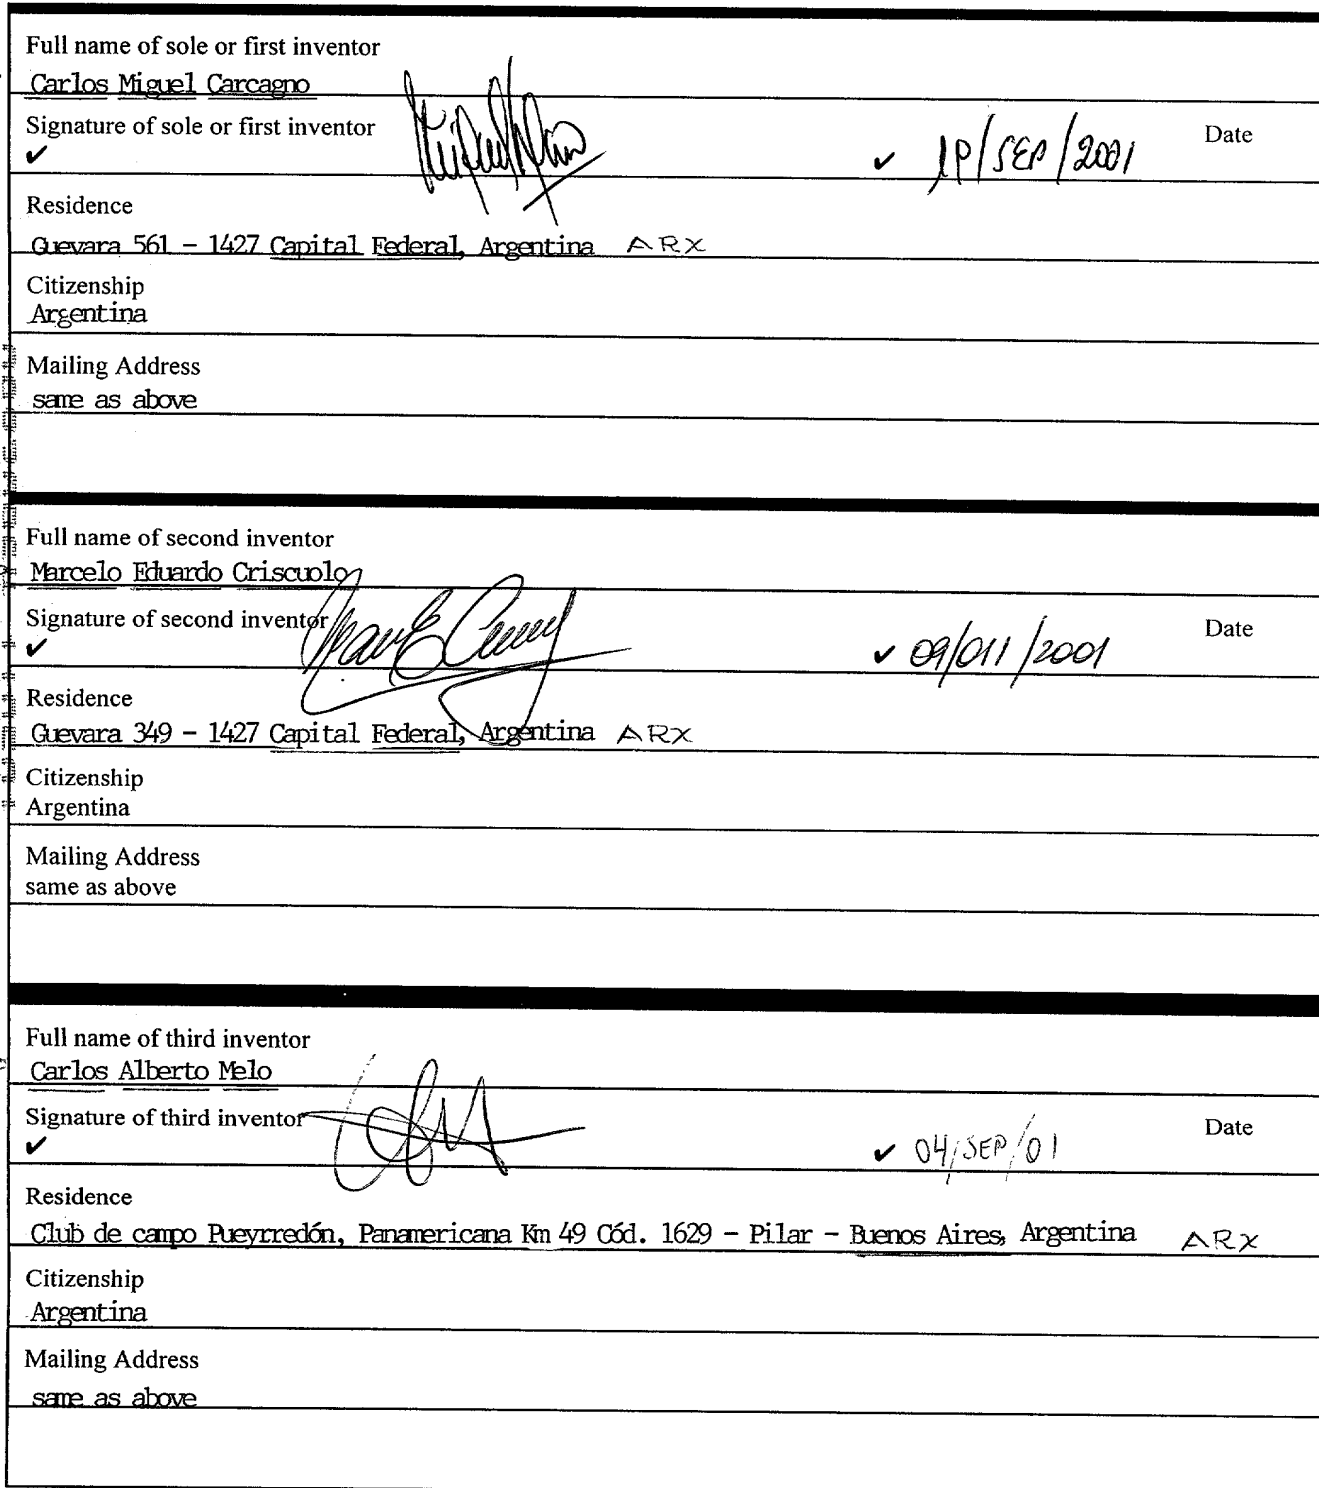 Full name of sole or first inventor
Carlos Miguel Carcagno
Signature of sole or first inventor
✔ ✔ /SEP/2001 Date
Residence
Guevara 561 – 1427 Capital Federal, Argentina ARX
Citizenship
Argentina
Mailing Address
same as above
Full name of second inventor
Marcelo Eduardo Criscuolo
Signature of second inventor
✔ ✔ 09/011/2001 Date
Residence
Guevara 349 – 1427 Capital Federal, Argentina ARX
Citizenship
Argentina
Mailing Address
same as above
Full name of third inventor
Carlos Alberto Melo
Signature of third inventor
✔ ✔ 04/SEP/01 Date
Residence
Club de campo Pueyrredón, Panamericana Km 49 Cód. 1629 – Pilar – Buenos Aires, Argentina ARX
Citizenship
Argentina
Mailing Address
same as above